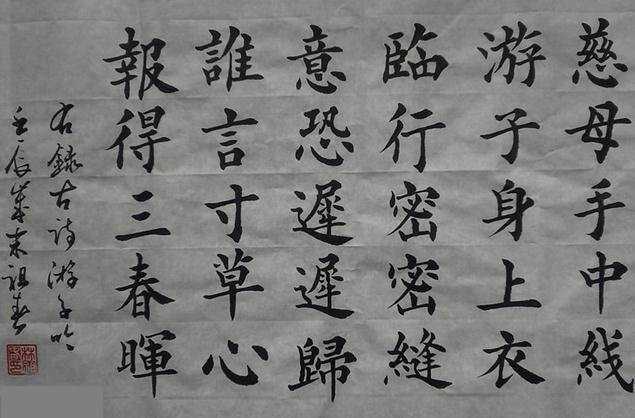 慈母手中线
游子身上衣
臨行密密縫
意恐遲遲歸
誰言寸草心
報得三春暉
右録古詩游子吟
壬辰歲末祖春